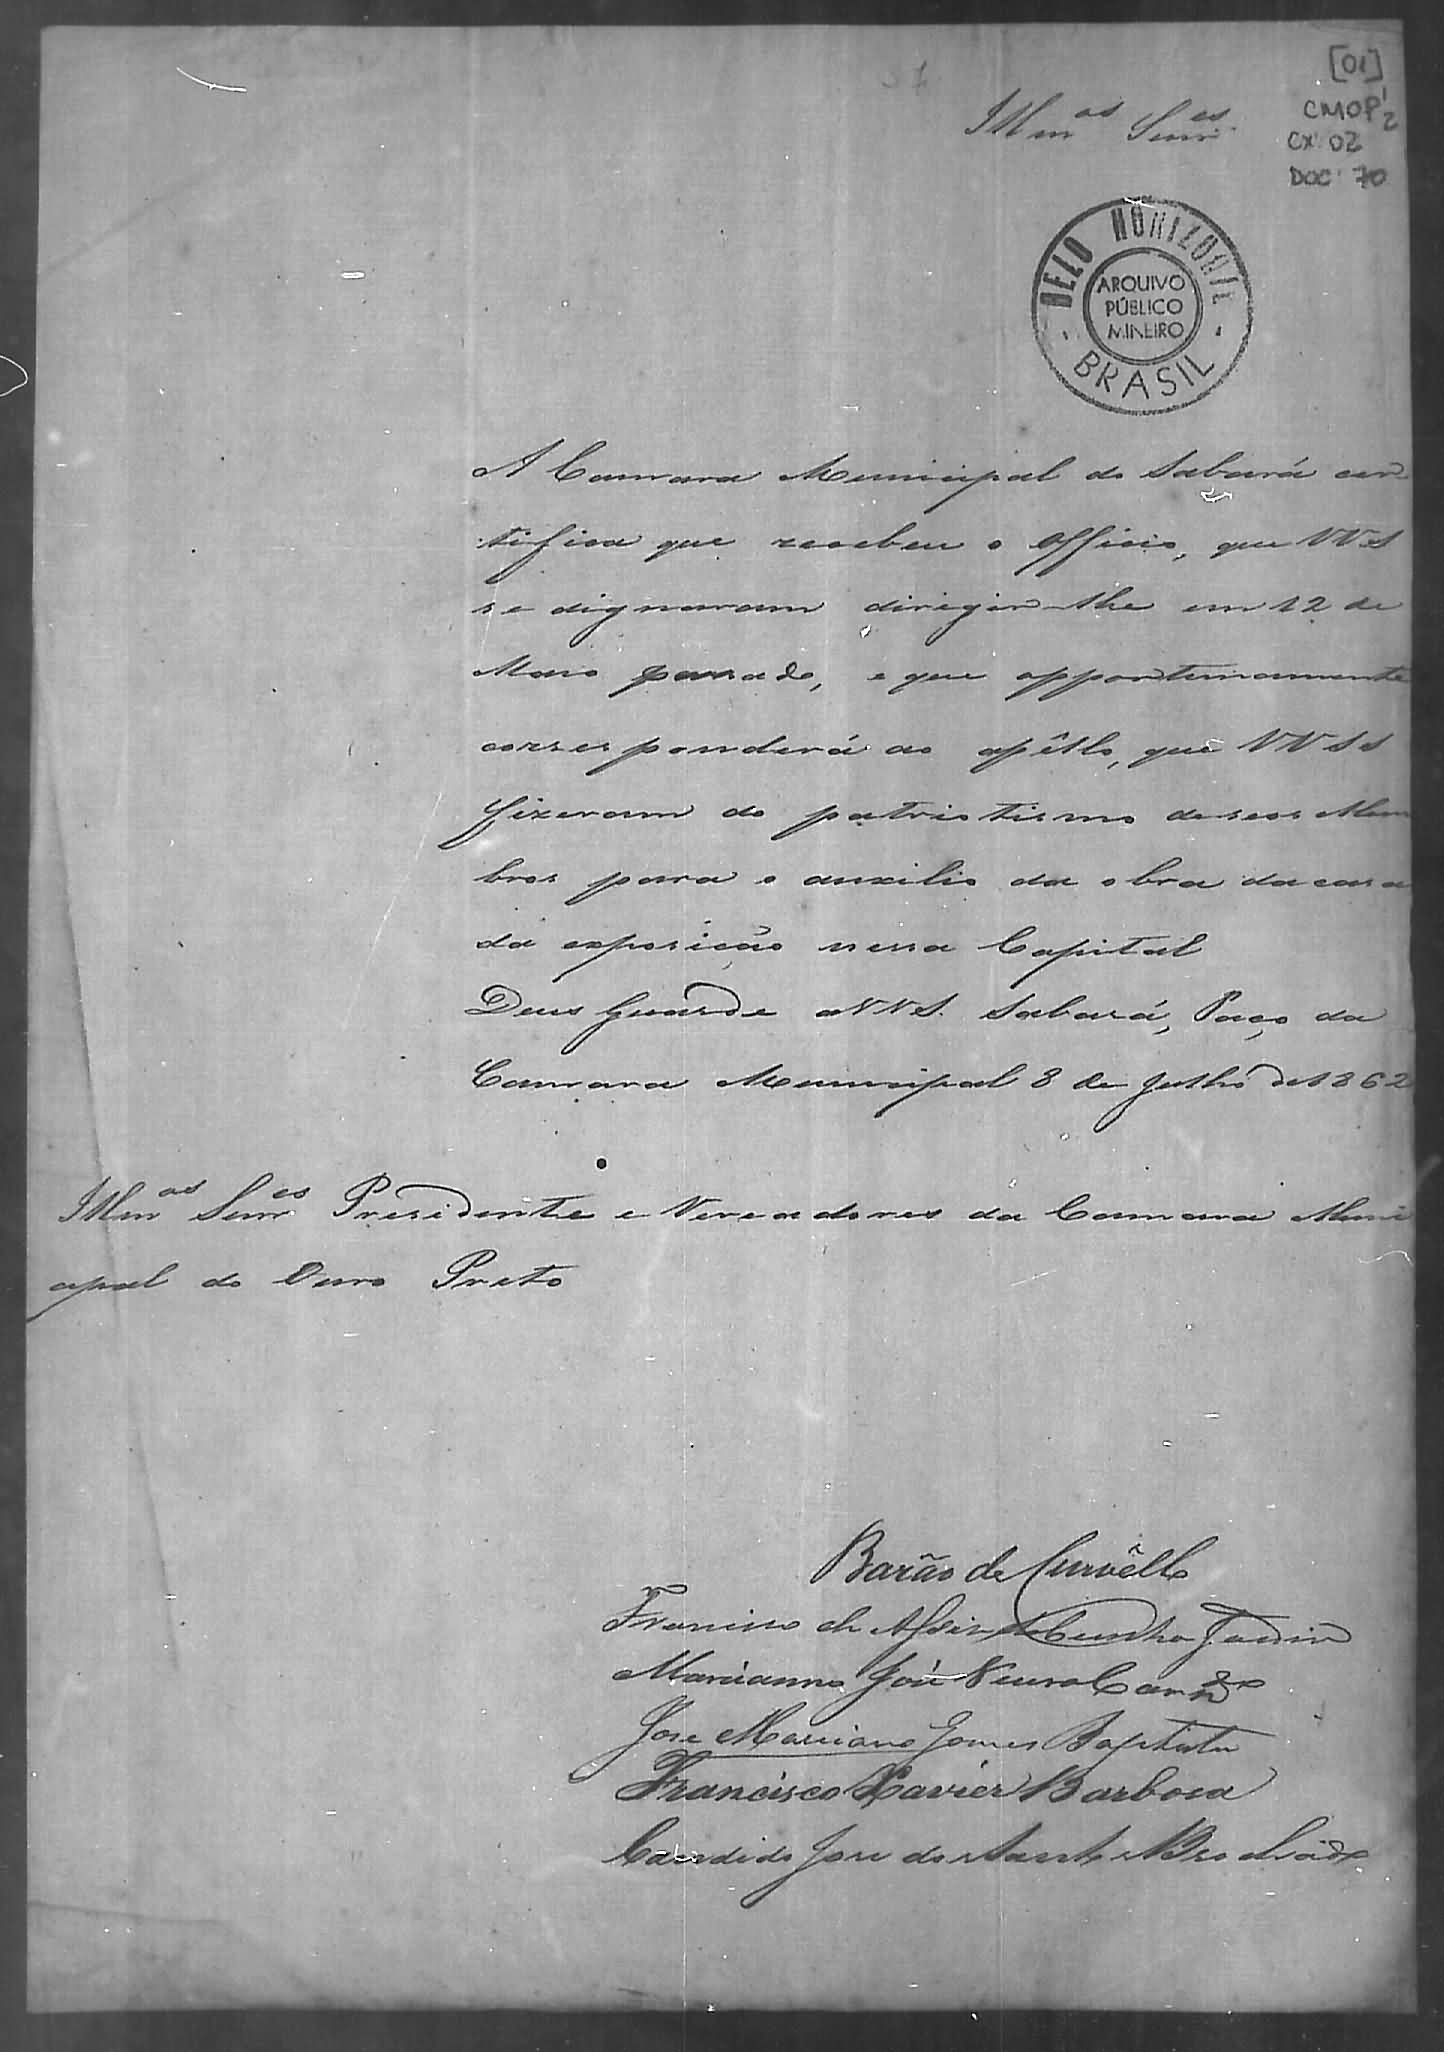 [01]
CMOP 1/2
CX. 02
DOC. 70
Illmos Senres
BELO HORIZONTE
ARQUIVO
PÚBLICO
MINEIRO
BRASIL
A Camara Municipal do Sabará cer
tifica que recebeu o officio, que VVSs
se dignaram dirigir-lhe em 12 de
Maio passado, e que opportunamente
corresponderá ao apêllo, que VVSs
fizeram do patriotismo de seos Mem
bros para o auxilio da obra da casa
da exposição nessa Capital
Deus Guarde a VVS. Sabará, Paço da
Camara Municipal 8 de Julho de 1862
Illmos Senres Presidente e Vereadores da Camara Muni
cipal do Ouro Preto
Barão de Curvêllo
Francisco de Assis da Cunha Jardim
Marianno José
José Marciano Gomes Baptista
Francisco Xavier Barbosa
Candido José dos Santos